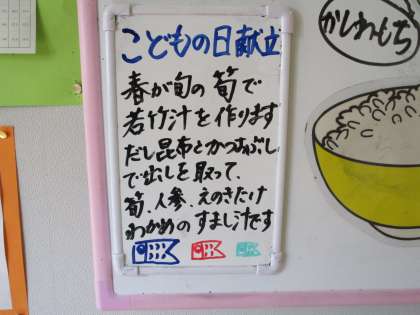 こどもの日献立
春が旬の筍で
若竹汁を作ります
だし昆布とかつおぶし
で出しを取って、
筍、人参、えのきたけ
わかめのすまし汁です
かしわもち